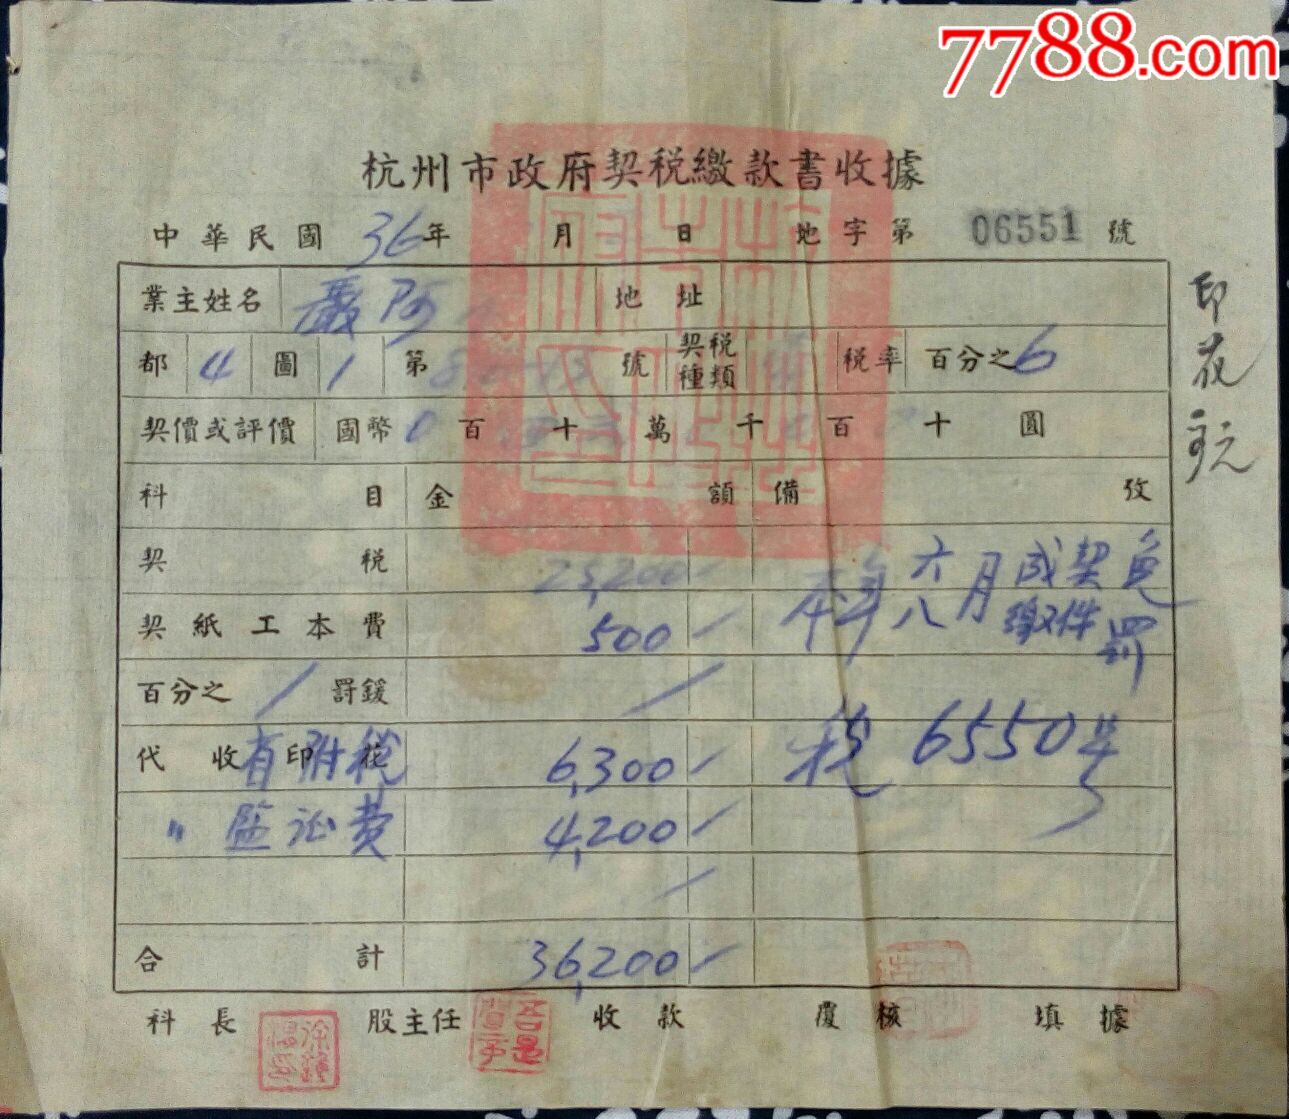 7788.com
杭州市政府契税繳款書收據
中華民國36年 月 日 地字第 06551 號
業主姓名 嚴阿 地址
都 4 圖 1 第 號 契税種類 税率 百分之6
契價或評價 國幣 0 百 十 萬 千 百 十 圓
科目 金額 備攷
契税 25,200 本年六月成契免
八 繳件 罰
契紙工本費 500
百分之 / 罰鍰
代收印花 有附税 6,300 税 6550号
〃 监证费 4,200
合計 36,200
科長 股主任 收款 覆核 填據
印花